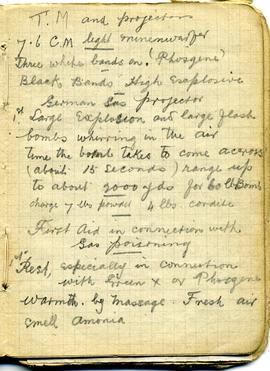 T.M and projectors
7.6 C.M light minenwerfer
Three white bands on. (Phosgene)
Black Bands High Explosive
German Gas projector
1st Large Explosion and large flash
bombs whirring in the air
time the bomb takes to come across
(about 15 seconds) range up
to about 2000 yds for 60 lb Bomb
charge 7 lbs powder 4 lbs. cordite
First Aid in connection with
Gas poisoning
1st Rest, especially in connection
with Green X or Phosgene
Warmth. by massage. Fresh air
smell amonia